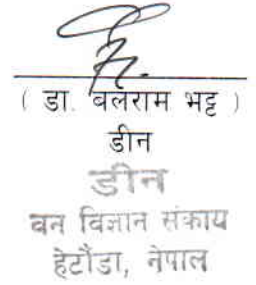 ( डा. बलराम भट्ट )
डीन
डीन
वन विज्ञान संकाय
हेटौंडा, नेपाल